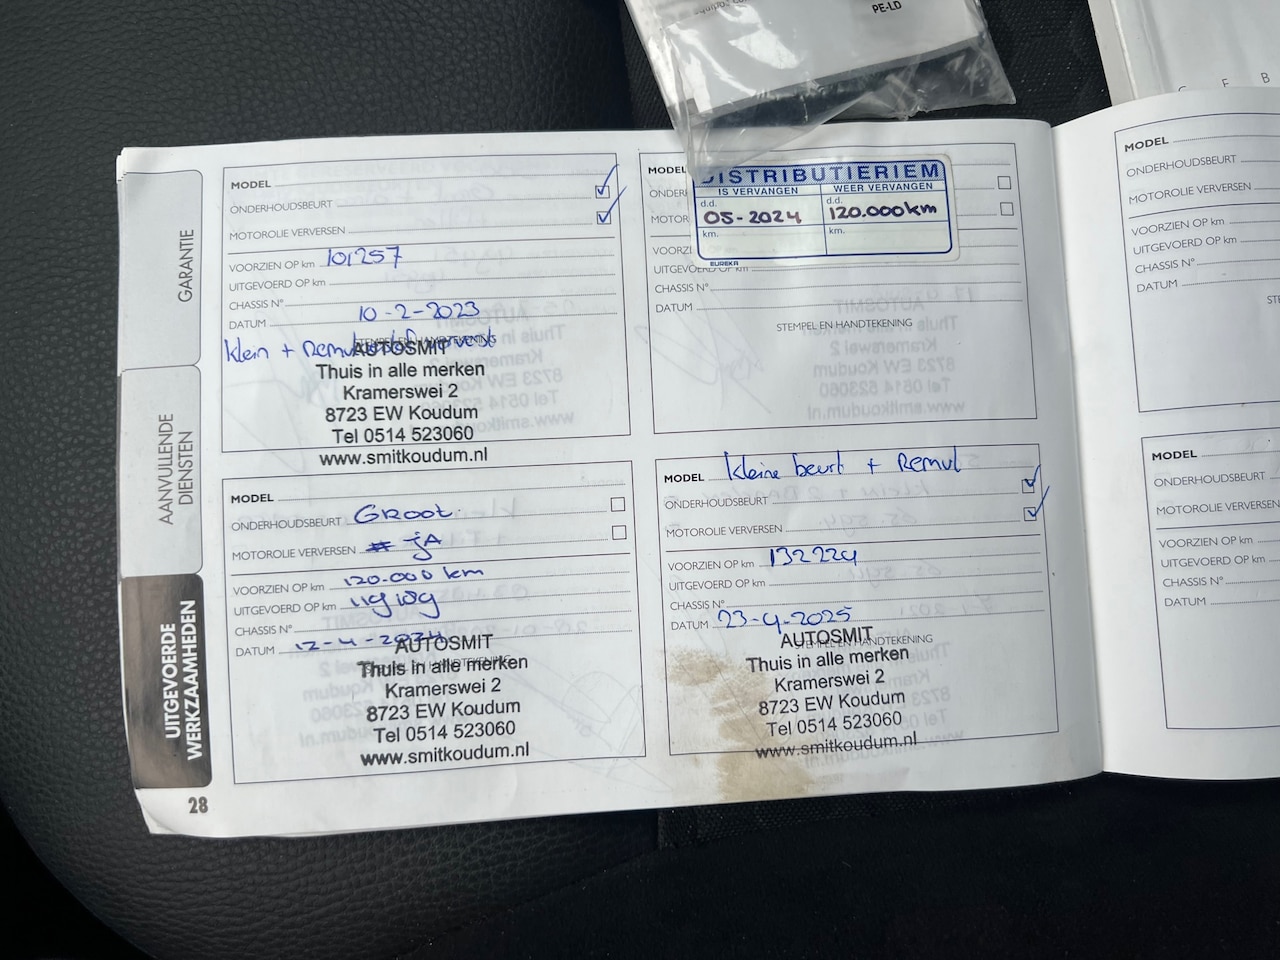 PE-LD
G E B
GARANTIE
AANVULLENDE
DIENSTEN
UITGEVOERDE
WERKZAAMHEDEN
28
MODEL
ONDERHOUDSBEURT
MOTOROLIE VERVERSEN
VOORZIEN OP km 101257
UITGEVOERD OP km
CHASSIS N°
DATUM 10-2-2023
STEMPEL EN HANDTEKENING
klein + Remvloeistof ververst
AUTOSMIT
Thuis in alle merken
Kramerswei 2
8723 EW Koudum
Tel 0514 523060
www.smitkoudum.nl
MODEL
DISTRIBUTIERIEM
IS VERVANGEN
WEER VERVANGEN
d.d.
05-2024
d.d.
120.000km
km.
km.
EUREKA
UITGEVOERD OP km
CHASSIS N°
DATUM
STEMPEL EN HANDTEKENING
MODEL
ONDERHOUDSBEURT GROOT.
MOTOROLIE VERVERSEN jA
VOORZIEN OP km 120.000 km
UITGEVOERD OP km
CHASSIS N°
DATUM 12-4-2024
STEMPEL EN HANDTEKENING
AUTOSMIT
Thuis in alle merken
Kramerswei 2
8723 EW Koudum
Tel 0514 523060
www.smitkoudum.nl
MODEL kleine beurt + Remvl
ONDERHOUDSBEURT
MOTOROLIE VERVERSEN
VOORZIEN OP km 132224
UITGEVOERD OP km
CHASSIS N°
DATUM 23-4-2025
STEMPEL EN HANDTEKENING
AUTOSMIT
Thuis in alle merken
Kramerswei 2
8723 EW Koudum
Tel 0514 523060
www.smitkoudum.nl
MODEL
ONDERHOUDSBEURT
MOTOROLIE VERVERSEN
VOORZIEN OP km
UITGEVOERD OP km
CHASSIS N°
DATUM
MODEL
ONDERHOUDSBEURT
MOTOROLIE VERVERSEN
VOORZIEN OP km
UITGEVOERD OP km
CHASSIS N°
DATUM